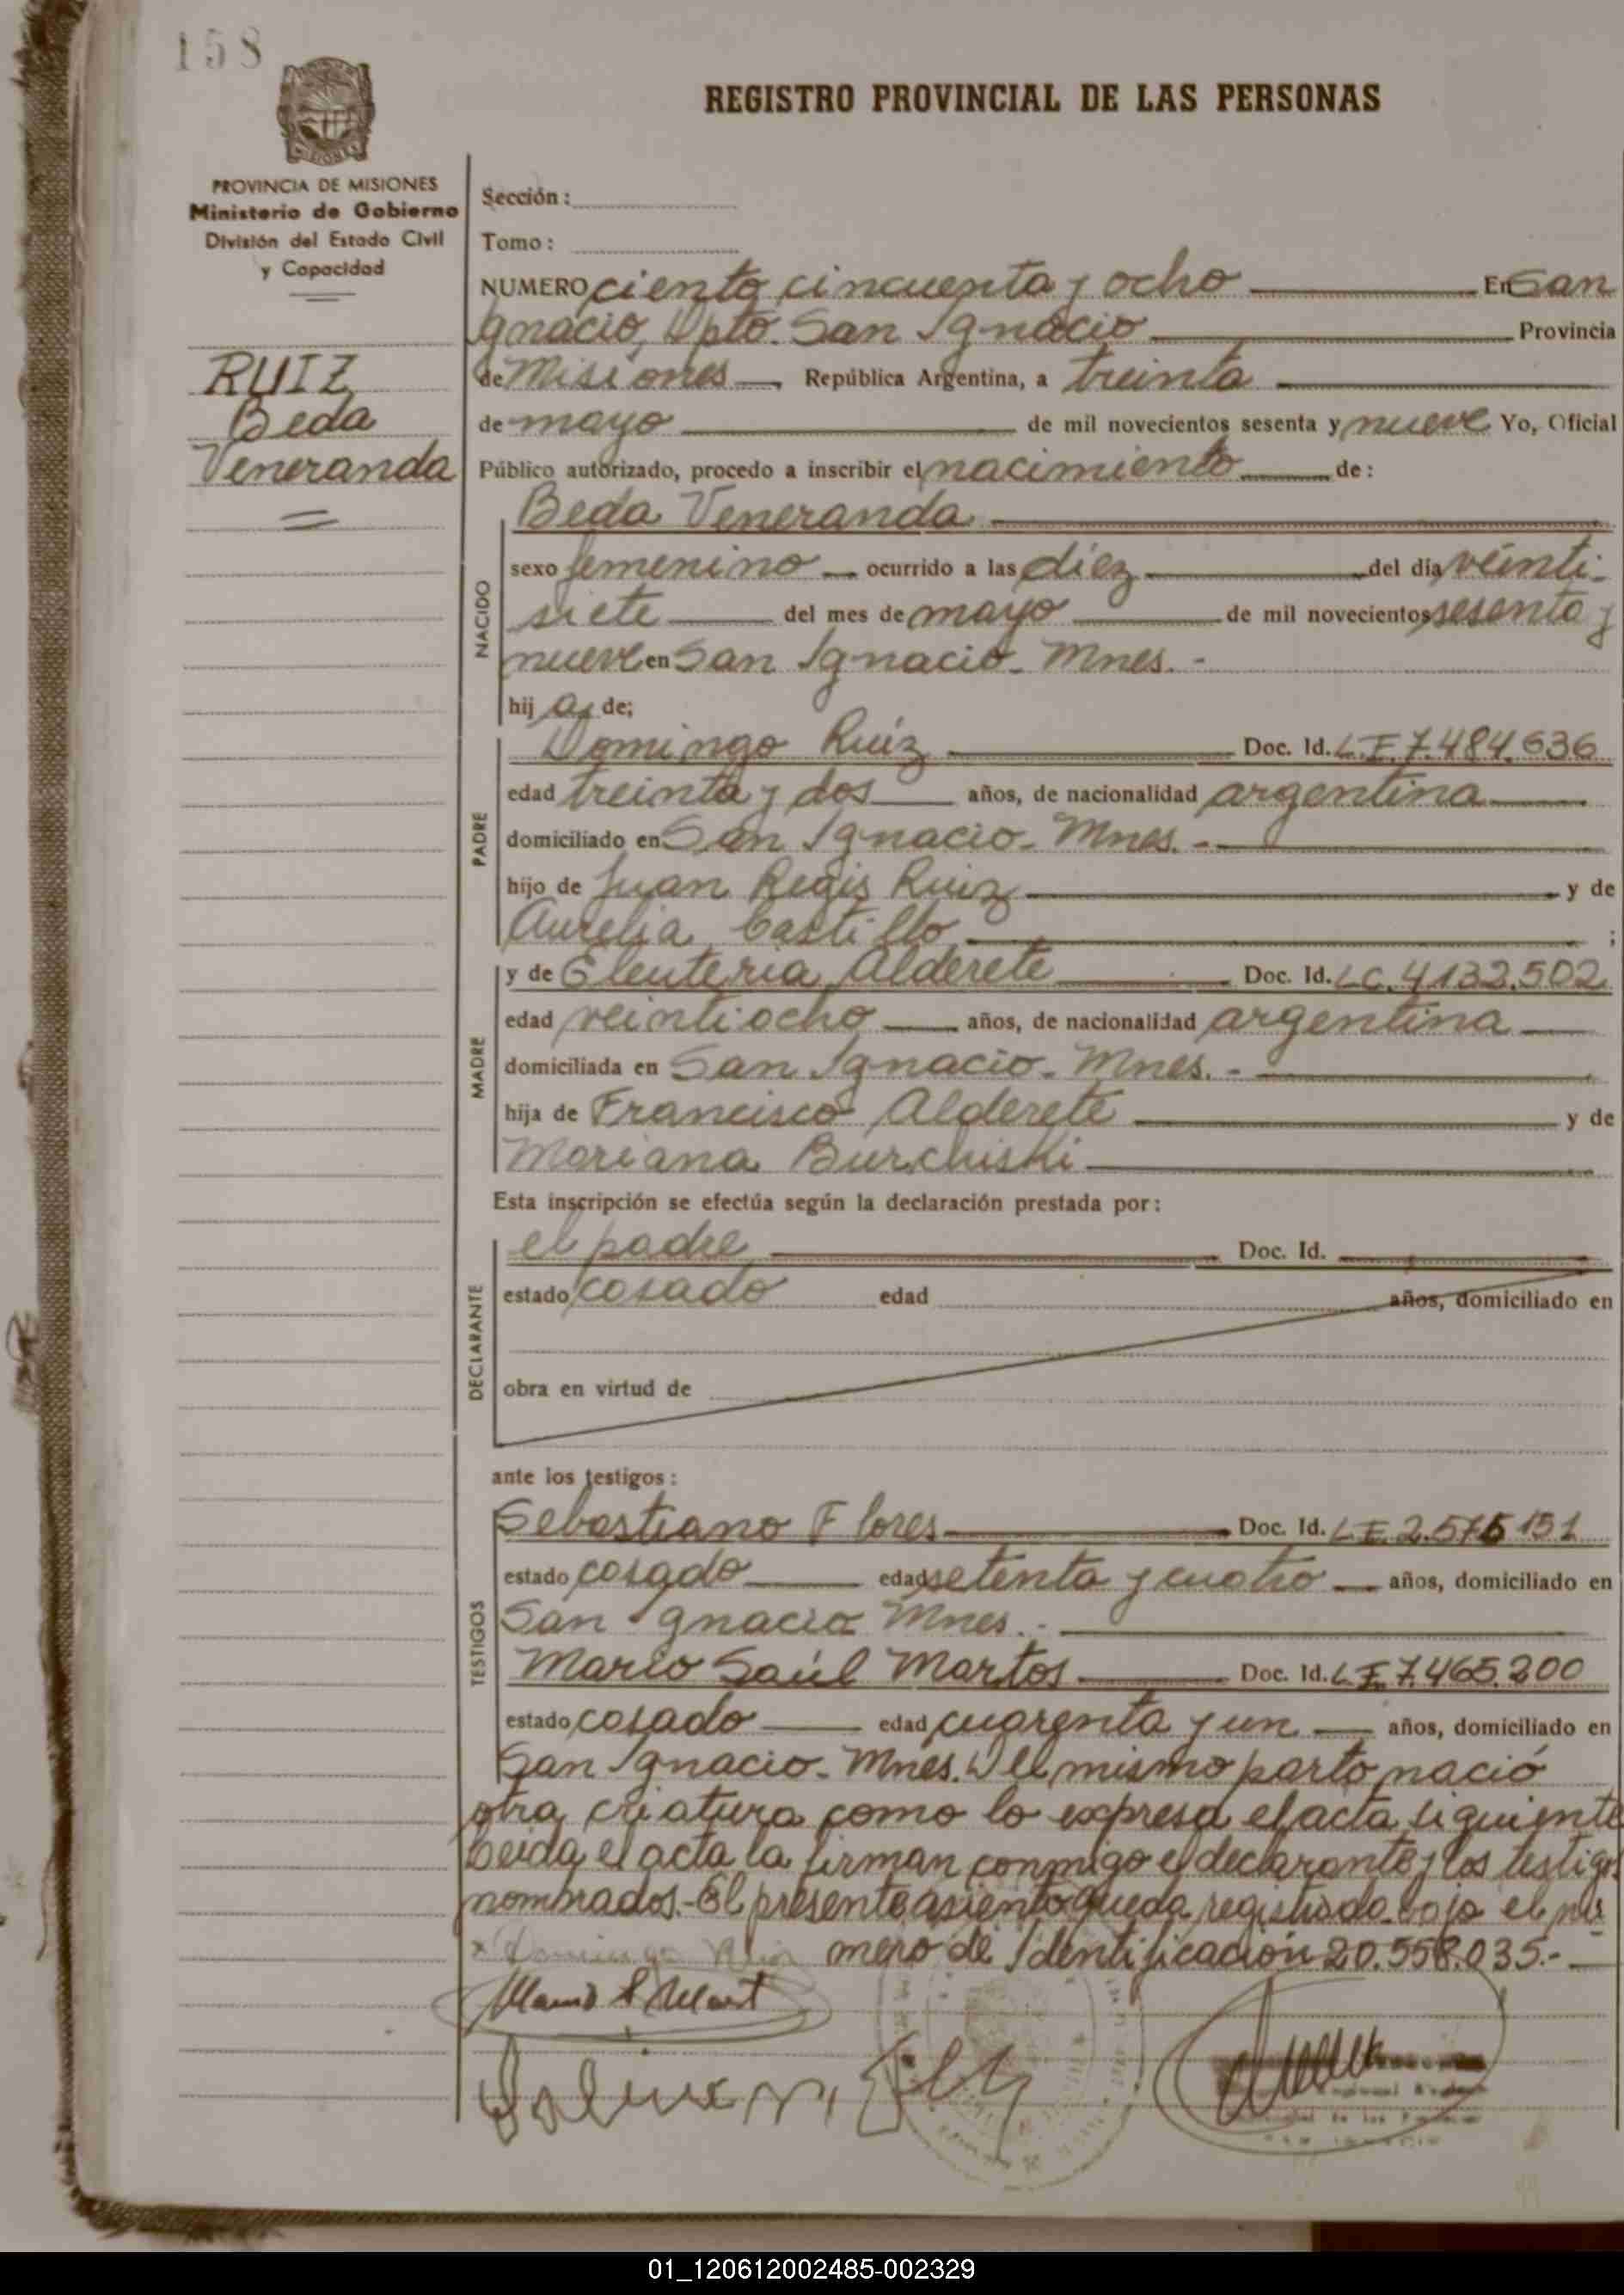 158
REGISTRO PROVINCIAL DE LAS PERSONAS
MISIONES
PROVINCIA DE MISIONES
Ministerio de Gobierno
División del Estado Civil
y Capacidad
RUIZ
Beda
Veneranda
Sección:
Tomo:
NUMERO ciento cincuenta y ocho En San
Ignacio, Dpto. San Ignacio Provincia
de Misiones, República Argentina, a treinta
de mayo de mil novecientos sesenta y nueve Yo, Oficial
Público autorizado, procedo a inscribir el nacimiento de:
NACIDO
Beda Veneranda
sexo femenino ocurrido a las diez del día veinti-
siete del mes de mayo de mil novecientos sesenta y
nueve en San Ignacio - Mnes. -
hij a de;
PADRE
Domingo Ruíz Doc. Id. L.E. 7.484.636
edad treinta y dos años, de nacionalidad argentina
domiciliado en San Ignacio - Mnes. -
hijo de Juan Regis Ruiz y de
Aurelia Castillo ;
MADRE
y de Eleuteria Alderete Doc. Id. LC. 4.132.502
edad veintiocho años, de nacionalidad argentina
domiciliada en San Ignacio - Mnes. -
hija de Francisco Alderete y de
Mariana Burchiski
Esta inscripción se efectúa según la declaración prestada por:
DECLARANTE
el padre Doc. Id.
estado casado edad años, domiciliado en
obra en virtud de
ante los testigos:
TESTIGOS
Sebastiano Flores Doc. Id. L.E. 2.575.151
estado casado edad setenta y cuatro años, domiciliado en
San Ignacio Mnes. -
Mario Saúl Martos Doc. Id. L.E. 7.465.200
estado casado edad cuarenta y un años, domiciliado en
San Ignacio - Mnes. Del mismo parto nació
otra criatura como lo expresa el acta siguiente
Leida el acta la firman conmigo el declarante y los testigos
nombrados. - El presente asiento queda registrado bajo el nú
mero de Identificación 20.558.035. -
x Domingo Ruiz
01_120612002485-002329